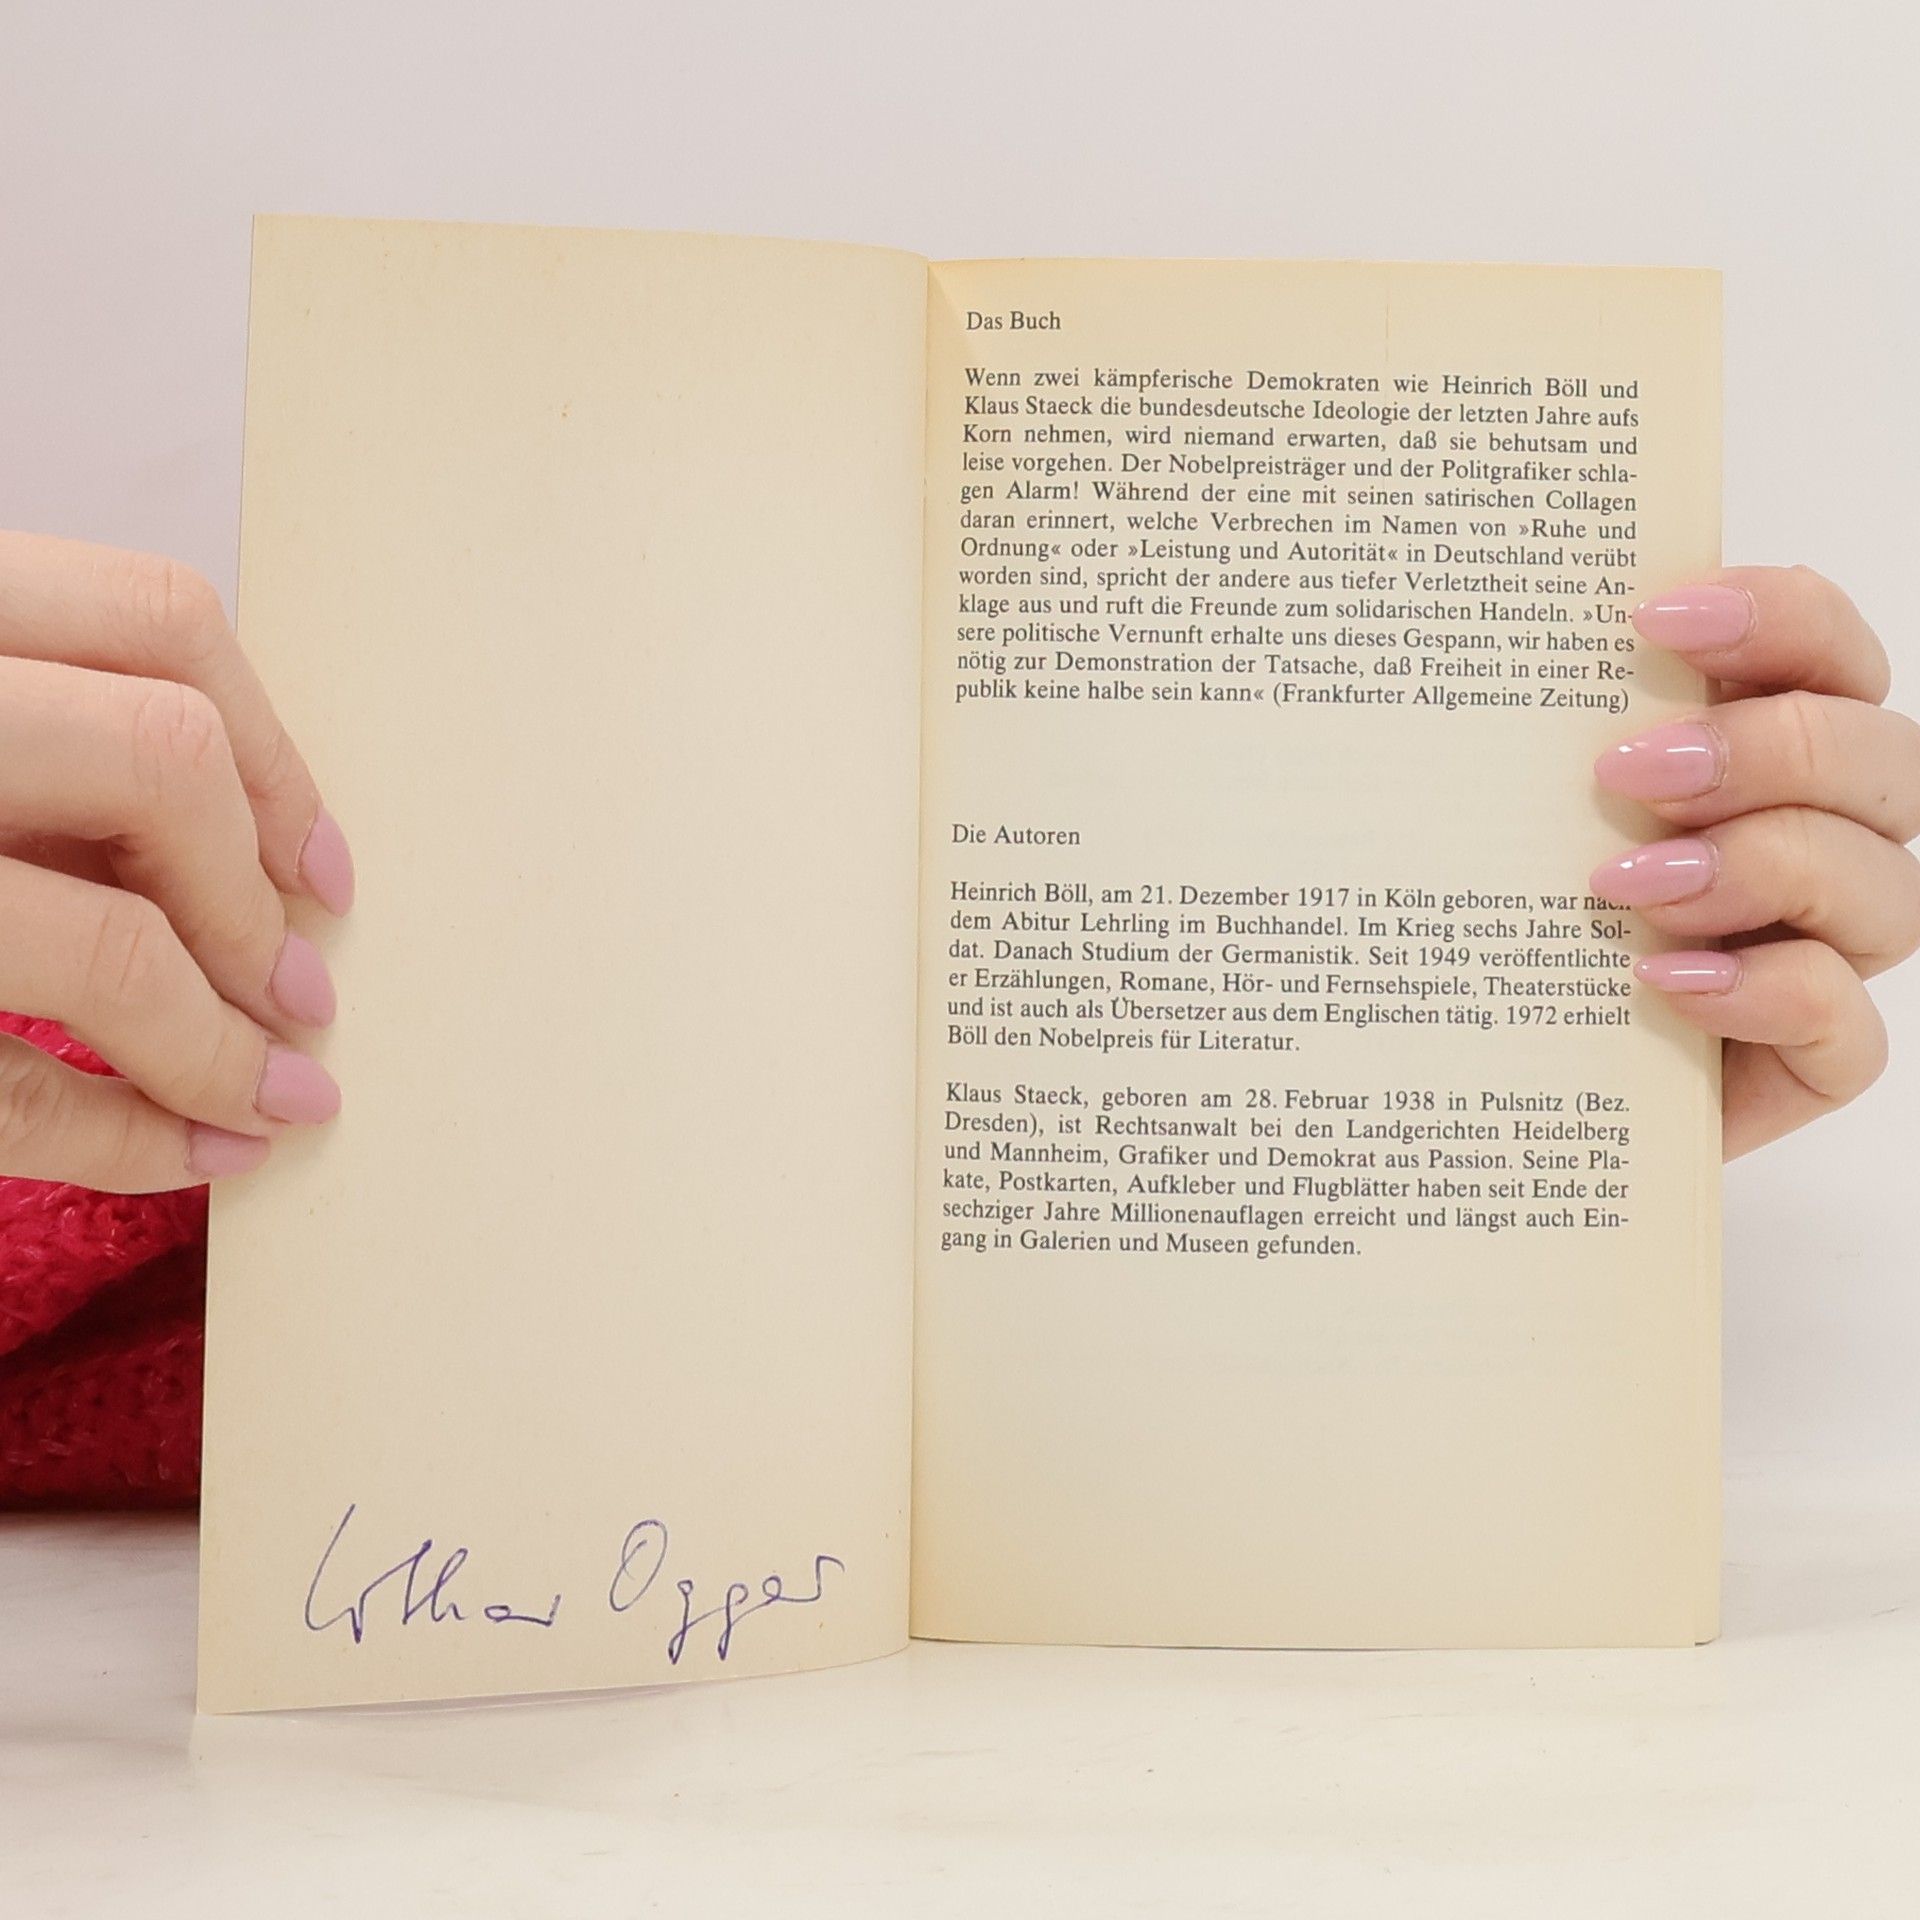 Lothar Ogger
Das Buch
Wenn zwei kämpferische Demokraten wie Heinrich Böll und
Klaus Staeck die bundesdeutsche Ideologie der letzten Jahre aufs
Korn nehmen, wird niemand erwarten, daß sie behutsam und
leise vorgehen. Der Nobelpreisträger und der Politgrafiker schla-
gen Alarm! Während der eine mit seinen satirischen Collagen
daran erinnert, welche Verbrechen im Namen von »Ruhe und
Ordnung« oder »Leistung und Autorität« in Deutschland verübt
worden sind, spricht der andere aus tiefer Verletztheit seine An-
klage aus und ruft die Freunde zum solidarischen Handeln. »Un-
sere politische Vernunft erhalte uns dieses Gespann, wir haben es
nötig zur Demonstration der Tatsache, daß Freiheit in einer Re-
publik keine halbe sein kann« (Frankfurter Allgemeine Zeitung)
Die Autoren
Heinrich Böll, am 21. Dezember 1917 in Köln geboren, war nach
dem Abitur Lehrling im Buchhandel. Im Krieg sechs Jahre Sol-
dat. Danach Studium der Germanistik. Seit 1949 veröffentlichte
er Erzählungen, Romane, Hör- und Fernsehspiele, Theaterstücke
und ist auch als Übersetzer aus dem Englischen tätig. 1972 erhielt
Böll den Nobelpreis für Literatur.
Klaus Staeck, geboren am 28. Februar 1938 in Pulsnitz (Bez.
Dresden), ist Rechtsanwalt bei den Landgerichten Heidelberg
und Mannheim, Grafiker und Demokrat aus Passion. Seine Pla-
kate, Postkarten, Aufkleber und Flugblätter haben seit Ende der
sechziger Jahre Millionenauflagen erreicht und längst auch Ein-
gang in Galerien und Museen gefunden.